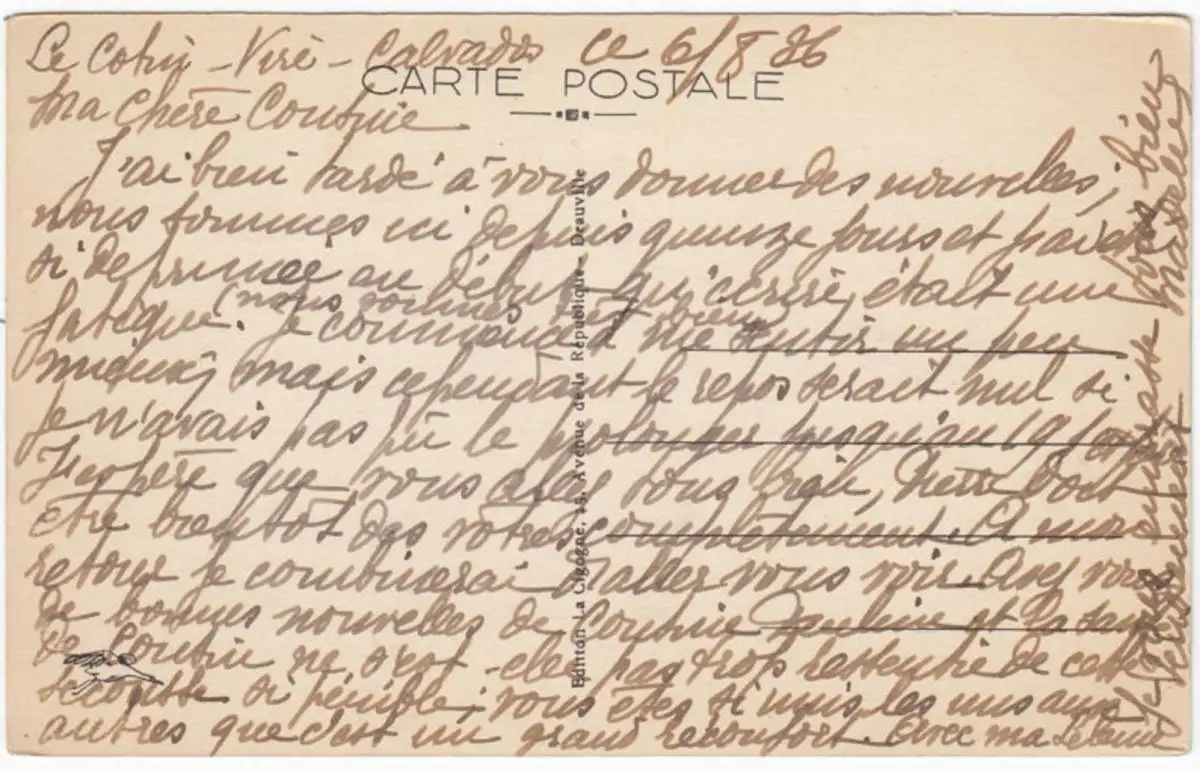 Calvados ce 6/8 36
CARTE POSTALE
Ma chère Cousine
J'ai bien tardé à vous donner des nouvelles,
nous sommes ici depuis quinze jours et j'avais
si déprimée au début qu'écrire était une
fatigue. (nous sommes très bien)
je commence à me sentir un peu
mieux, mais cependant le repos serait nul si
je n'avais pas pu le prolonger jusqu'au 19
J'espère que vous allez tous bien, doit
être bientôt des vôtres complètement. A mon
retour je continuerai d'aller vous voir. Avez vous
de bonnes nouvelles de Cousine Pauline et la santé
de Cousin ne s'est-elle pas trop ressentie de cette
secousse si pénible; vous êtes si unis les uns aux
autres que c'est un grand réconfort. Avec
Je vous embrasse tous bien
tendrement
Edition La Cigogne, 15, Avenue de la République - Deauville